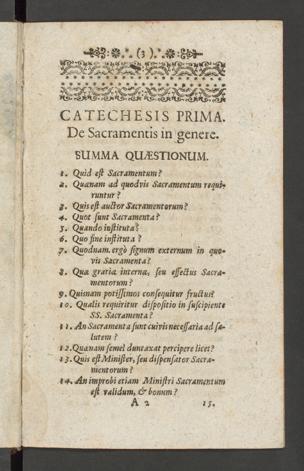 (3)
CATECHESIS PRIMA.
De Sacramentis in genere.
SUMMA QUÆSTIONUM.
1. Quid est Sacramentum?
2. Quænam ad quodvis Sacramentum requi-
runtur?
3. Quis est auctor Sacramentorum?
4. Quot sunt Sacramenta?
5. Quando instituta?
6. Quo fine instituta?
7. Quodnam ergò signum externum in quo-
vis Sacramenta?
8. Quæ gratia interna, seu effectus Sacra-
mentorum?
9. Quisnam potissimos consequitur fructus?
10. Qualis requiritur dispositio in suscipiente
SS. Sacramenta?
11. An Sacramenta sunt cuivis necessaria ad sa-
lutem?
12. Quænam semel duntaxat percipere licet?
13. Quis est Minister, seu dispensator Sacra-
mentorum?
14. An improbi etiam Ministri Sacramentum
est validum, & bonum?
A 2 15.